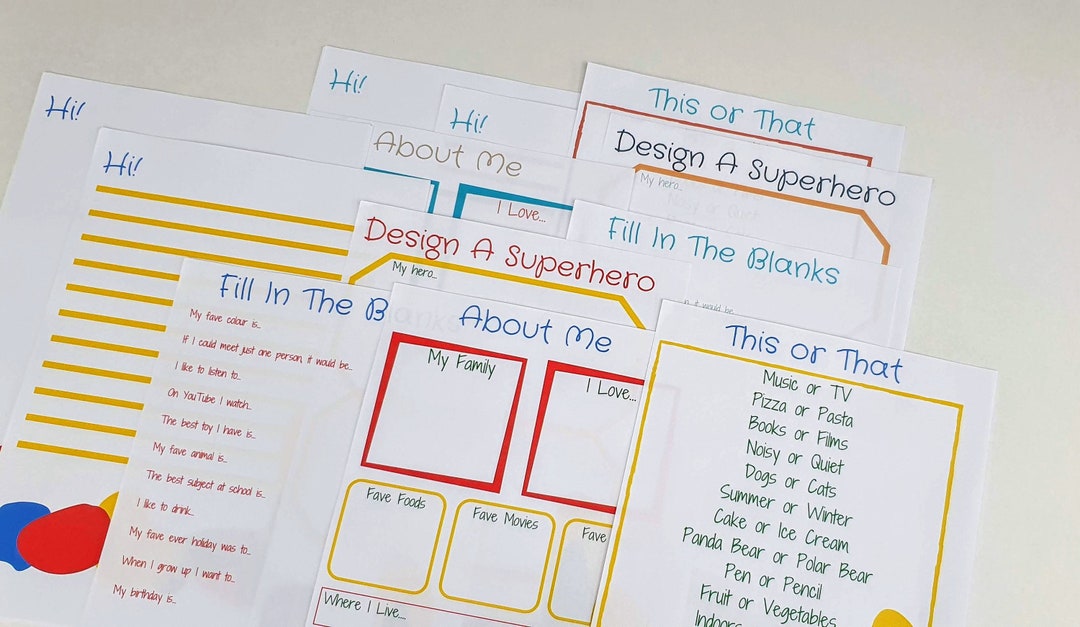 Hi!
Hi!
Hi!
Hi!
This or That
Design A Superhero
My hero...
Noisy or Quiet
About Me
I Love...
Fill In The Blanks
n, it would be...
Design A Superhero
My hero...
Fill In The Blanks
My fave colour is...
If I could meet just one person, it would be...
I like to listen to...
On YouTube I watch...
The best toy I have is...
My fave animal is...
The best subject at school is...
I like to drink...
My fave ever holiday was to...
When I grow up I want to...
My birthday is...
About Me
My Family
I Love...
Fave Foods
Fave Movies
Fave
Where I Live...
This or That
Music or TV
Pizza or Pasta
Books or Films
Noisy or Quiet
Dogs or Cats
Summer or Winter
Cake or Ice Cream
Panda Bear or Polar Bear
Pen or Pencil
Fruit or Vegetables
Indoors